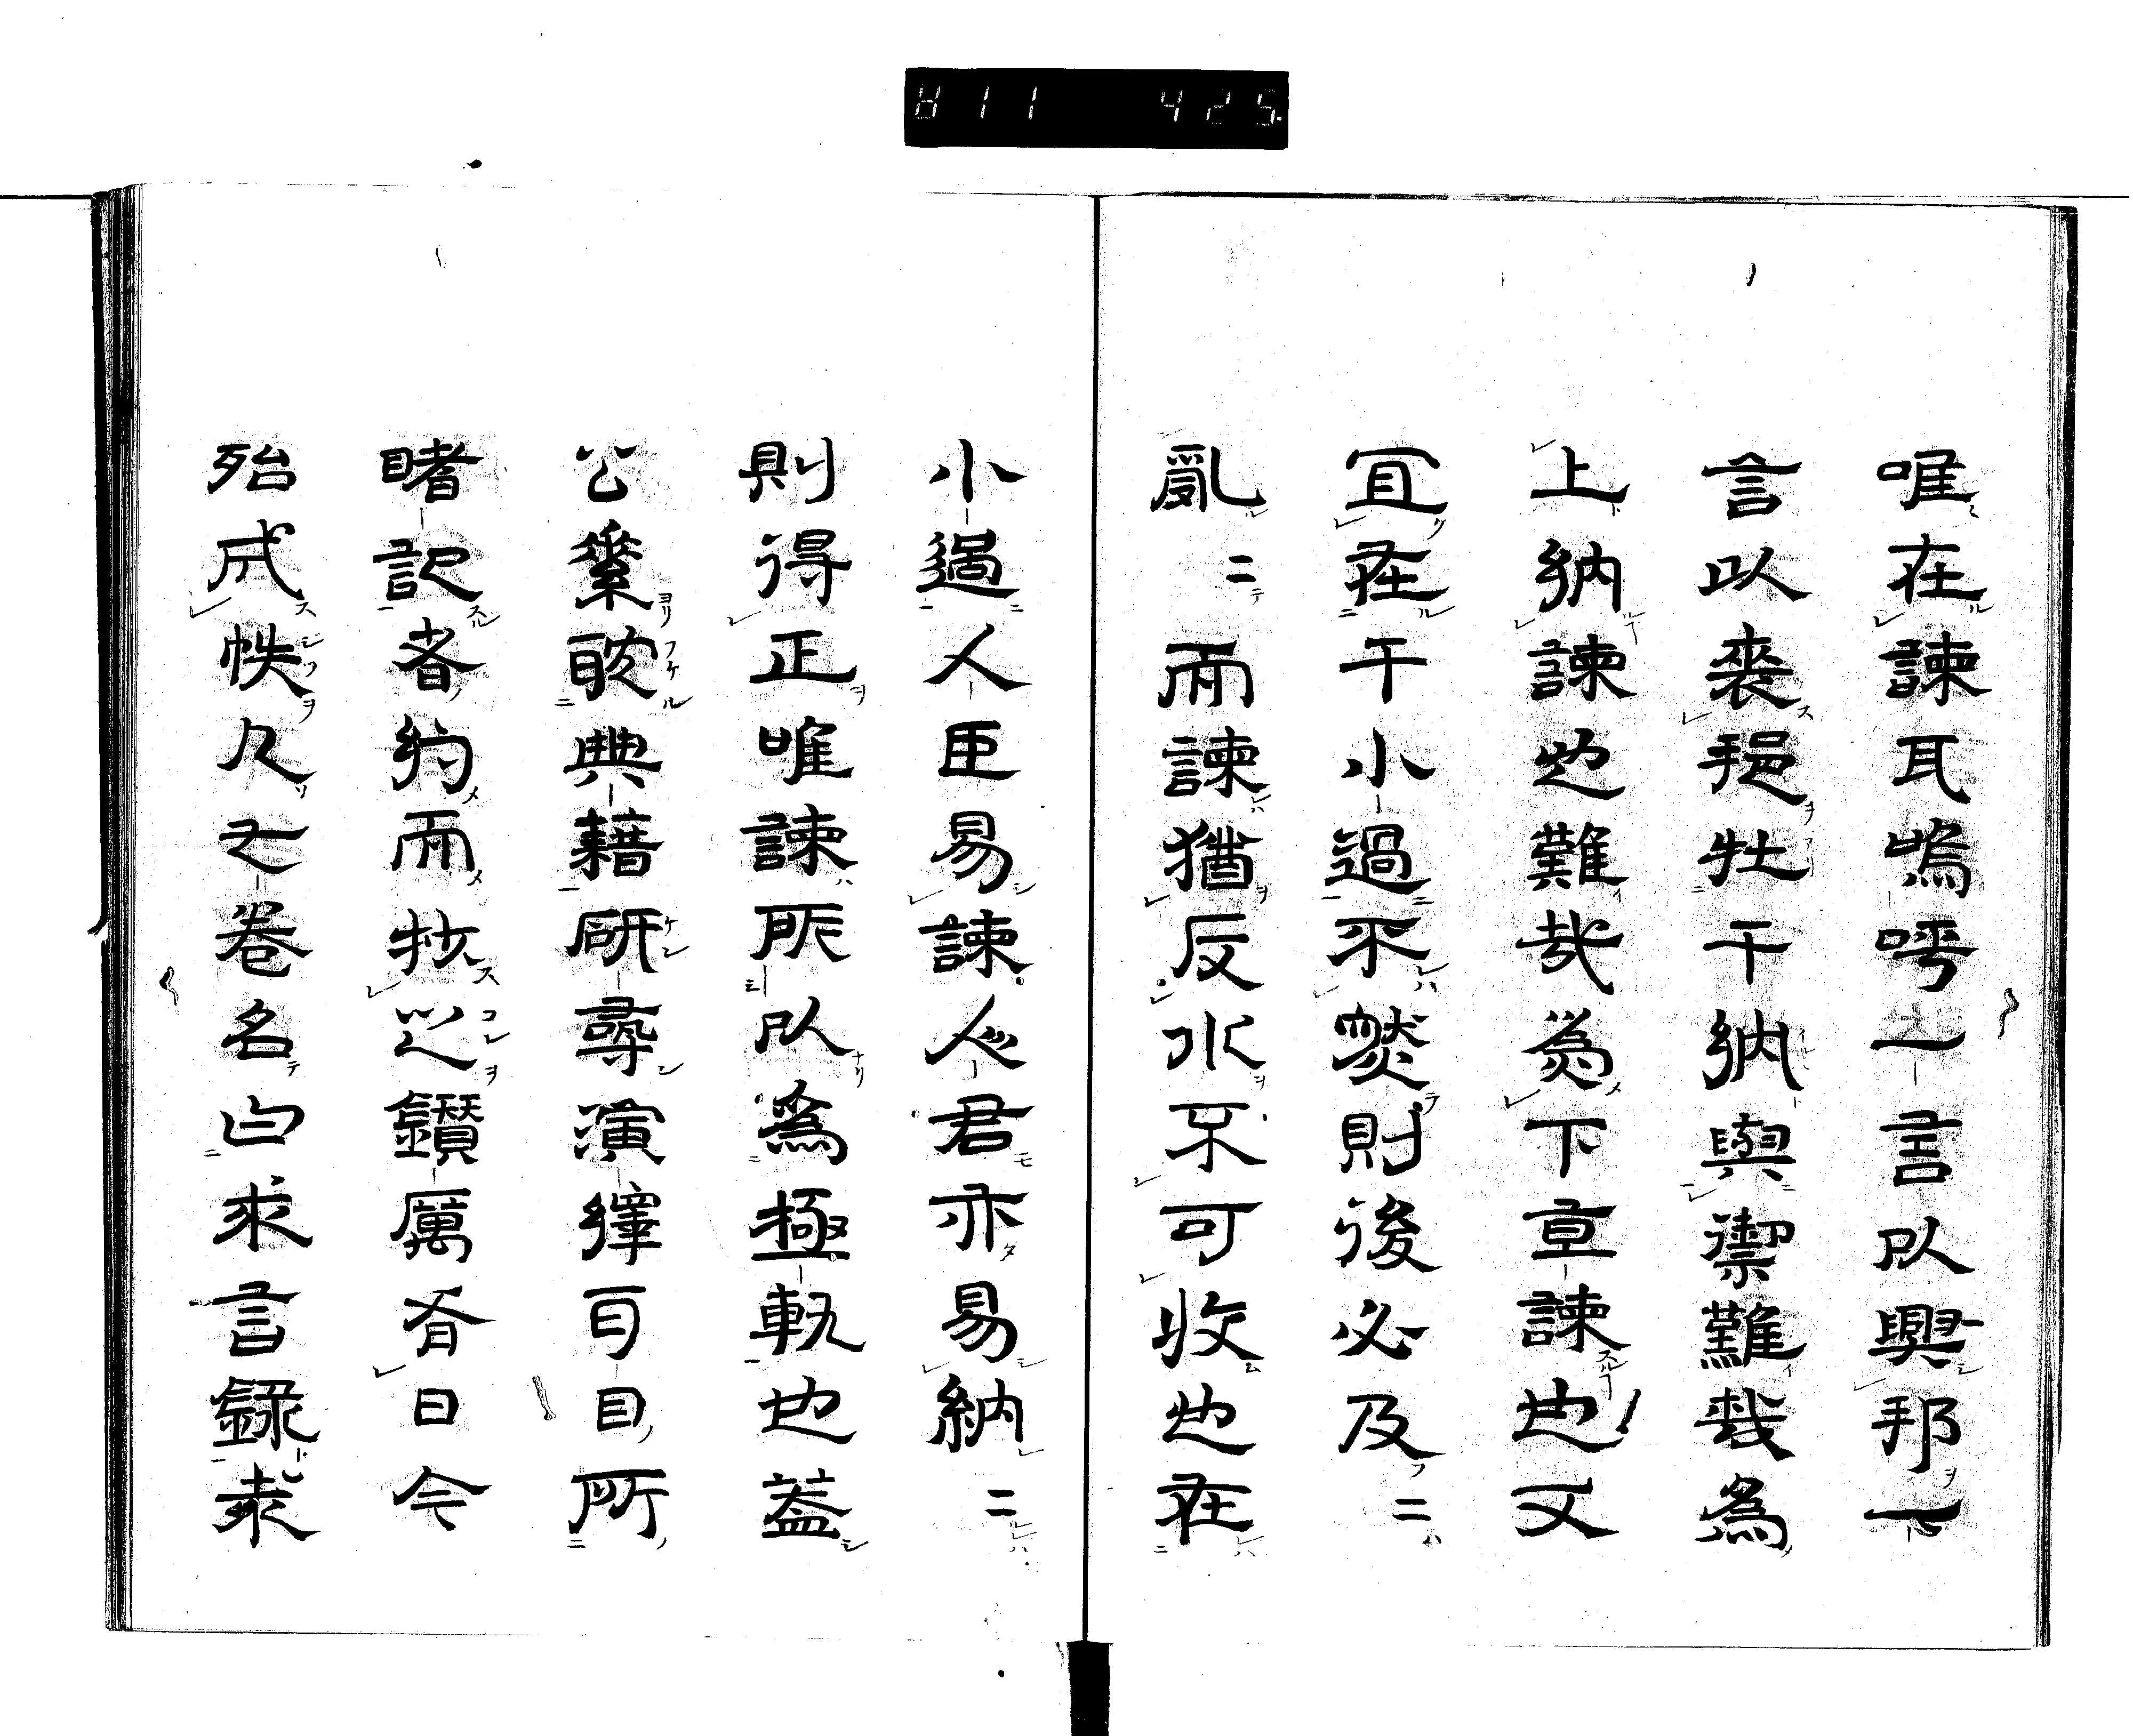 811 425
唯在諫耳嗚呼一言以興邦一
言以喪邦在于納與禦難哉為
上納諫也難哉為下直諫也又
宜在于小過不然則後必及二
亂二而諫猶反水不可收也在
小過人臣易諫人君亦易納二
則得正唯諫所以為極軌也蓋
公素耽典藉研尋演繹耳目所
睹記者約而抄之鑽厲有日今
殆成帙凡七卷名曰求言錄求